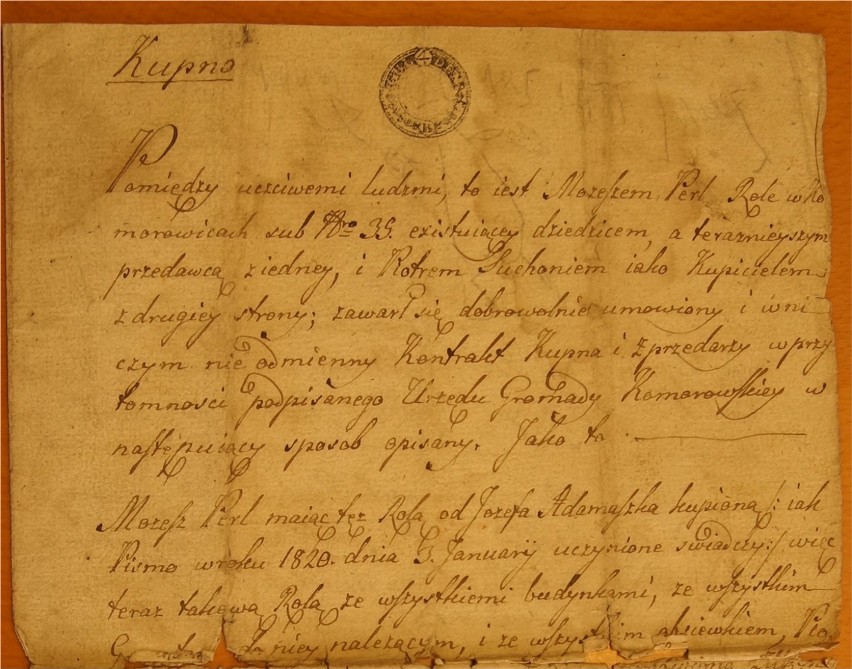 Kupno
Pomiędzy uczciwemi ludzmi, to iest Mozeszem Perl Role wko
morowicach sub Nro 35. existuiącey dziedzicem, a teraznieyszym
przedawcą ziedney, i Piotrem Suchoniem iako Kupicielem
zdrugiey strony; zawarł się dobrowolnie umowiony i wni
czym nie odmienny Kontrakt Kupna i zprzedarzy wprzy
tomności podpisanego Urzędu Gromady Komorowskiey w
następuiący sposob opisany. Jako to
Mozesz Perl maiąc tęz Rolą od Jozefa Adamaszka kupioną /: iak
Pismo wroku 1820. dnia 3. January uczynione swiadczy:/ więc
teraz takową Rolą ze wszystkiemi budynkami, ze wszystkim
do niey nalezącym, i ze wszystkim obsiewkiem,